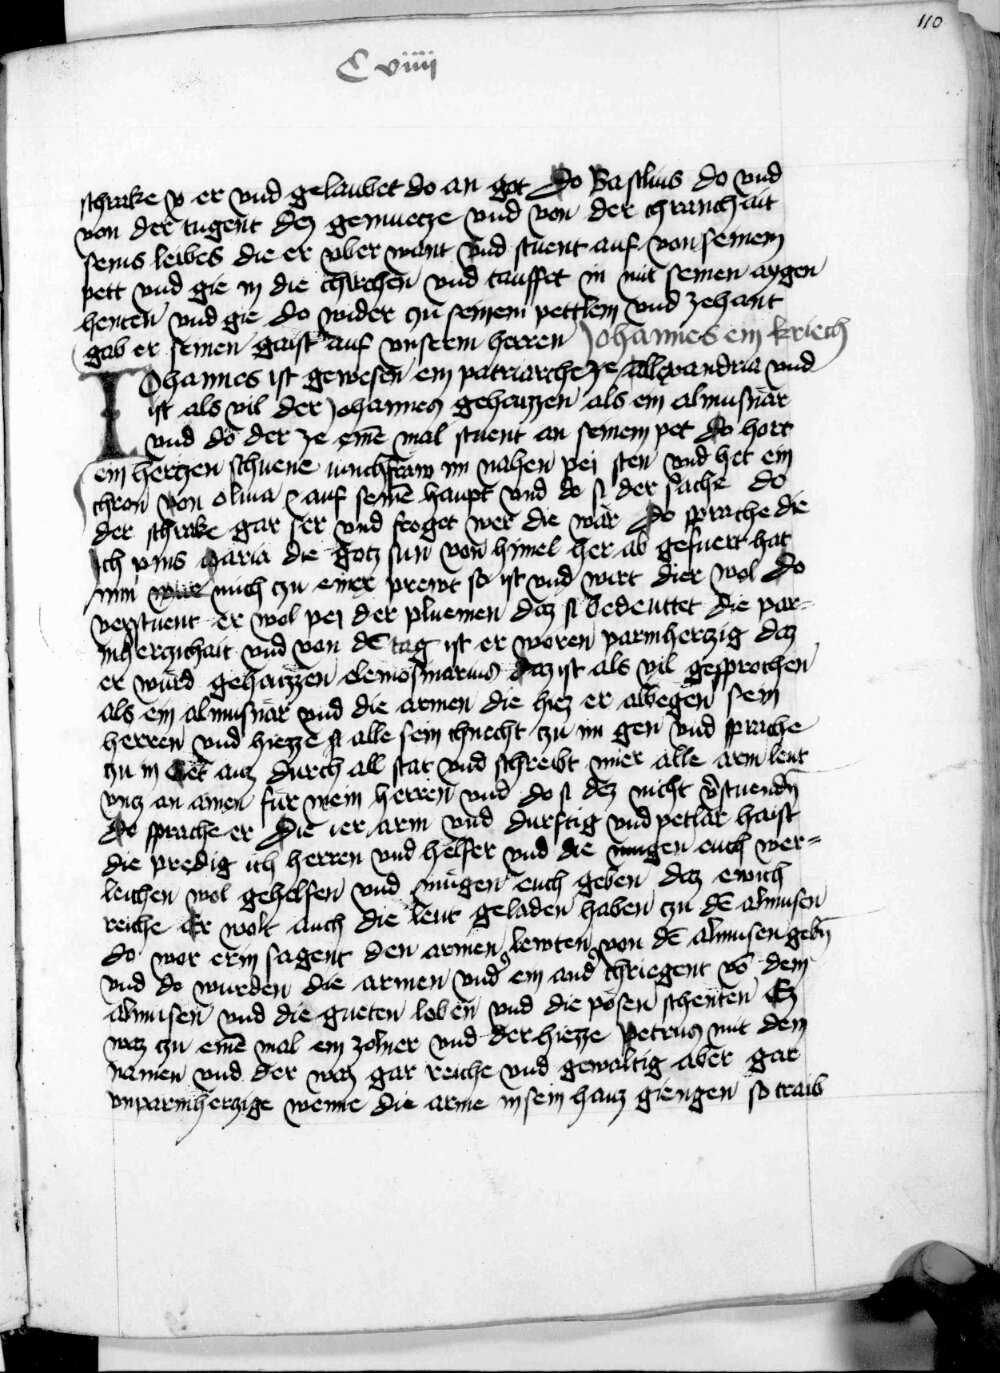 110
C viiii
schrake v er vnd gelaubet do an got Do Basilius do vnd
von der tugent dez gemuetze vnd von der chranchait
seins leibes die er vber want vnd stuent auf von seinem
pett vnd gie in die chirchen vnd tauffet in mit seinen aygen
henten vnd gie do wider zu seinem pettlein vnd zehant
gab er seinen gaist auf vnserm herren Johannes ein kriech
Johannes ist gewesen ein patriarche ze allexandria vnd
ist als vil der Johannes gehaizzen als ein almusnär
vnd do der ze eine mal stuent an seinem pet do hort
ein hertzen schuene iunchfraw im nahen pei sten vnd het ein
chron von oliua auf seine haupt vnd do si der sache do
der schrake gar ser vnd froget wer die wär Do sprache die
Ich pins maria die gotz sun von himel her ab gefuert hat
nim mich zu einer prewt so ist vnd wirt dier wol Do
verstuent er wol pei der pluemen daz si bedeuttet die par-
mherzichait vnd von de tag ist er woren parmherzig daz
er wurd gehaizzen elemosinarius daz ist als vil gesprochen
als ein almusnär vnd die armen die hiez er allwegen sein
herren vnd hiezze si alle sein chnecht zu im gen vnd sprache
zu in Get auz durch all stat vnd schreibt mier alle arm leut
vntz an ainen für mein herren vnd do si dez nicht vstuendn
Do sprache er Die ier arm vnd durftig vnd petlär haist
die predig ich herren vnd helfer vnd die mugen euch wer-
leichen wol gehelfen vnd mügen euch geben daz ewich
reiche Er wolt auch die leut geladen haben zu de almusen
do wor er im sagent den armen lewten von de almusen gebn
vnd do wurden die armen vnd ein and chriegent vo dem
almusen vnd die gueten loben vnd die posen schenten Ez
waz zu eine mal ein zolner vnd der hiezze Petrus mit dem
namen vnd der waz gar reiche vnd gewaltig aber gar
vnparmherzige wenne die arme in sein hauz giengen so traib